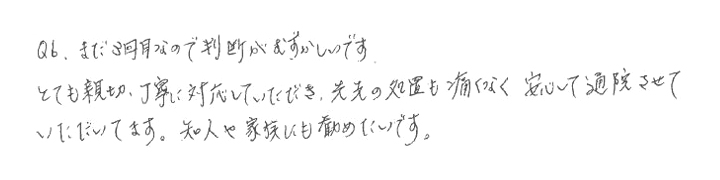 Q6、まだ3回目なので判断がむずかしいです
とても親切、丁寧に対応していただき、先生の処置も痛くなく 安心して通院させて
いただいてます。知人や家族にも勧めたいです。